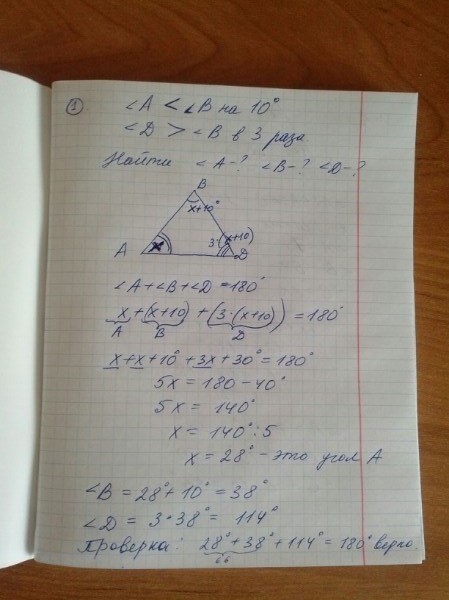 1
∠A < ∠B на 10°
∠D > ∠B в 3 раза
Найти ∠A-? ∠B-? ∠D-?
B
x+10°
A x 3·(x+10) D
∠A+∠B+∠D=180°
x+(x+10)+(3·(x+10))=180°
A B D
x+x+10°+3x+30°=180°
5x=180-40°
5x=140°
x=140°:5
x=28° - это угол A
∠B=28°+10°=38°
∠D=3·38°=114°
Проверка: 28°+38°+114°=180° верно.
66